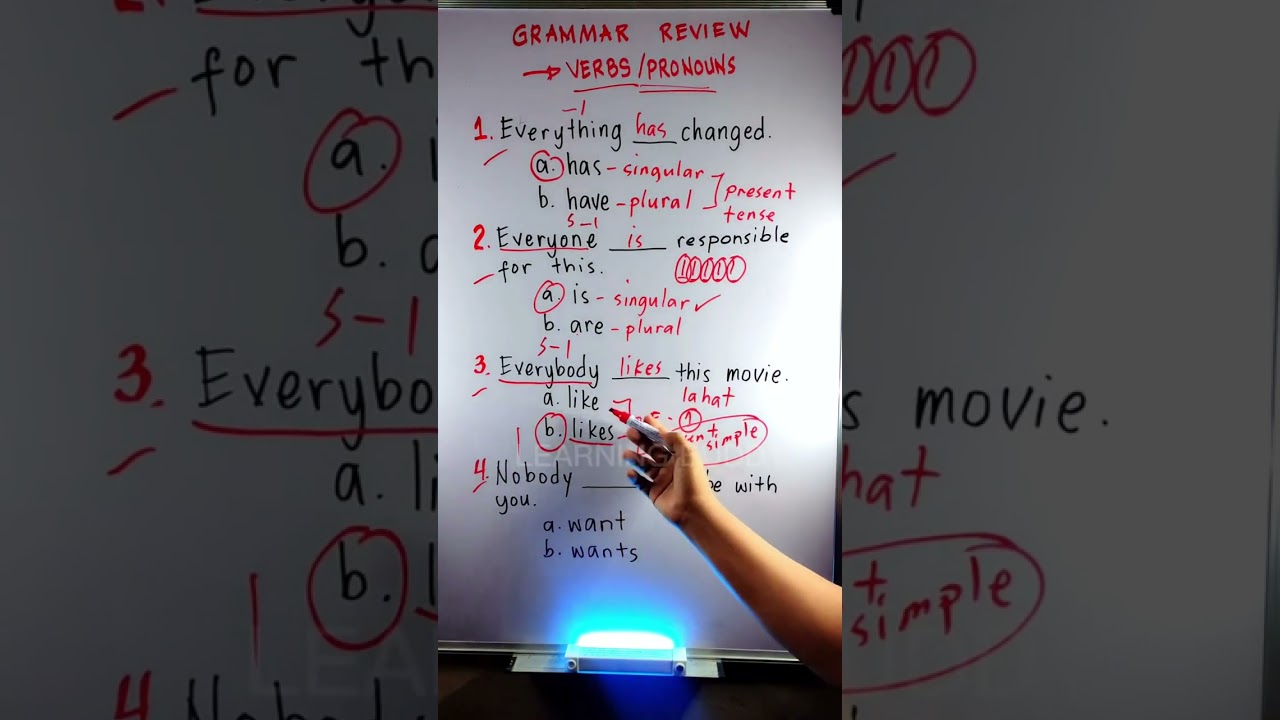 GRAMMAR REVIEW
→ VERBS/PRONOUNS
-1
1. Everything has changed.
a. has - singular
b. have - plural
present
tense
s-1
2. Everyone is responsible
for this.
11111
a. is - singular ✓
b. are - plural
s-1
3. Everybody likes this movie.
a. like
lahat
1
b. likes
simple
LEARNING
4. Nobody ____ be with
you.
a. want
b. wants